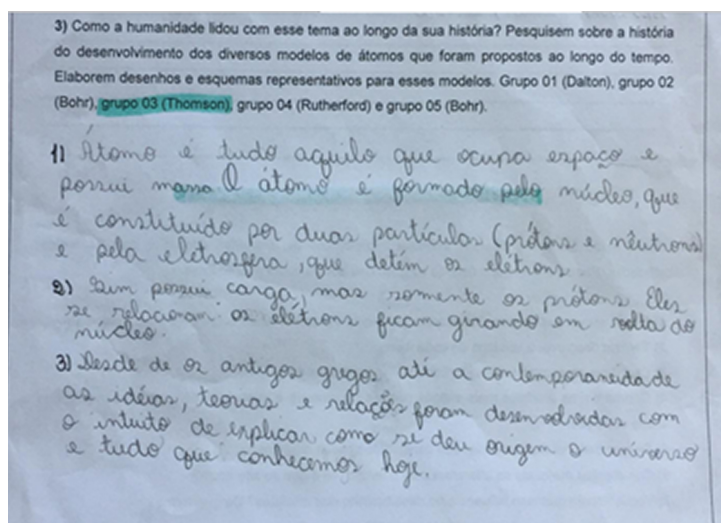 3) Como a humanidade lidou com esse tema ao longo da sua história? Pesquisem sobre a história
do desenvolvimento dos diversos modelos de átomos que foram propostos ao longo do tempo.
Elaborem desenhos e esquemas representativos para esses modelos. Grupo 01 (Dalton), grupo 02
(Bohr), grupo 03 (Thomson), grupo 04 (Rutherford) e grupo 05 (Bohr).
1) Átomo é tudo aquilo que ocupa espaço e
possui massa O átomo é formado pelo núcleo, que
é constituído por duas partículas (prótons e nêutrons)
e pela eletrosfera, que detém os elétrons.
2) Sim possui carga, mas somente os prótons. Eles
se relacionam os elétrons ficam girando em volta do
núcleo.
3) Desde de os antigos gregos até a contemporaneidade
as idéias, teorias e relações foram desenvolvidas com
o intuito de explicar como se deu origem o universo
e tudo que conhecemos hoje.